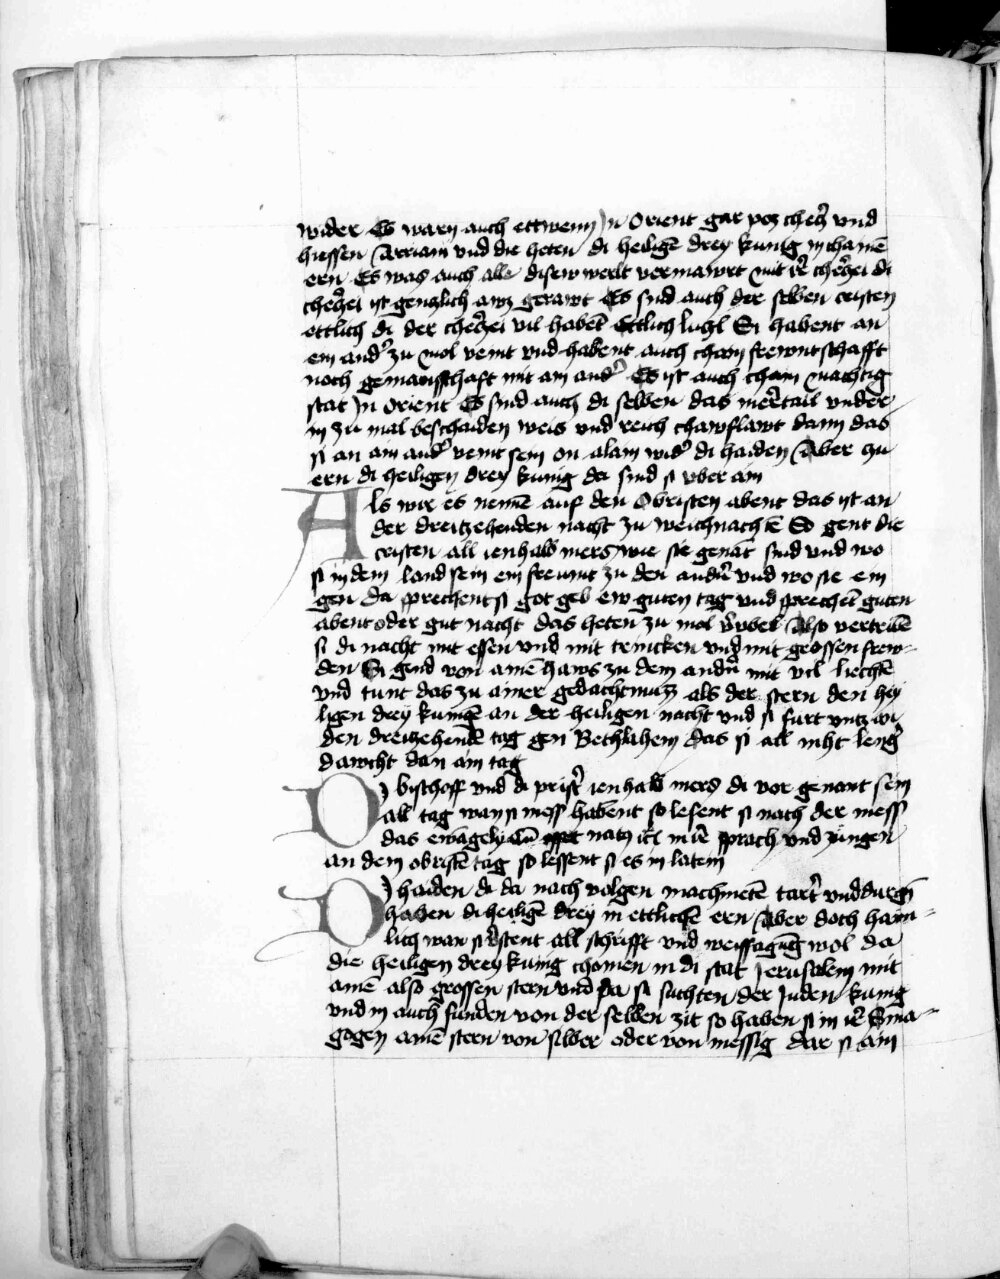 wider Es warn auch ettwenn jn Orient gar poz checzer vnd
hiessen Arriani vnd die heten di heilign̄ drey kunig in chainē
ern Es was auch alle disew werlt vermawrt mit ir̄ checz̄ei di
checz̄ei ist genczlich awz gerawt Es sind auch der selben cristen
ettlich di der checz̄ei vil habēt Ettlich luczl Si habent an
ein and̾ zu mol veint vnd habent auch chain frewntschafft
noch gemainschaft mit ain and̾ Es ist auch chain machtig
stat jn Orient Es sind auch di selben das mer̄tail vnder
in zu mal bescheiden weis vnd reich chawflawt dann das
si an ain and̾ veint sein on alain wid̾ di haiden Aber zu
ern di heiligen drey kunig da sind si vber ain
Als wir es nennē auf den Obristen abent das ist an
der dreitzehenden nacht zu weichnachtē So gent die
cristen all ienhalb mers wie sie genāt sind vnd wo
si in dem land sein ein freunt zu den andn̄ vnd wo sie ein
gen da sprechent si got geb ew guten tag vnd sprechēt guten
abent oder gut nacht das heten zu mol v̄vbel Also vertreibē
si di nacht mit essen vnd mit trincken vnd mit grossen frew-
den Si gend von ainē haws zu dem andn̄ mit vil liechtē
vnd tunt das zu ainer gedachtnuzz als der stern den hey
ligen drey kunigē an der heiligen nacht vnd si furt vntz an
den dreitzehendē tag gen Bethlahem das si all niht lenḡ
dawcht dan ain tag
Di bischoff vnd di prist̄ ienhalb mers di vor genant sein
all tag wan si mess habent so lesent si nach der mess
das ewāgely cū natz in ir̄ sprach vnd zungen
an dem obristē tag so lessent si es in latein
Di haiden di da nach volgen machmetē tart̄ vnd durgn̄
haben di heilign̄ drey in ettlichē ern Aber doch haim-
lich wan si v̄stent all schrifft vnd weissagūg wol da
die heiligen drey kunig chomen in di stat Jerusalem mit
ainē also grossen stern vnd da si suchten der Juden kunig
vnd in auch funden von der selben zit so haben si in ir̄ Sina-
gogen ainē stern von silber oder von messig dar si ain